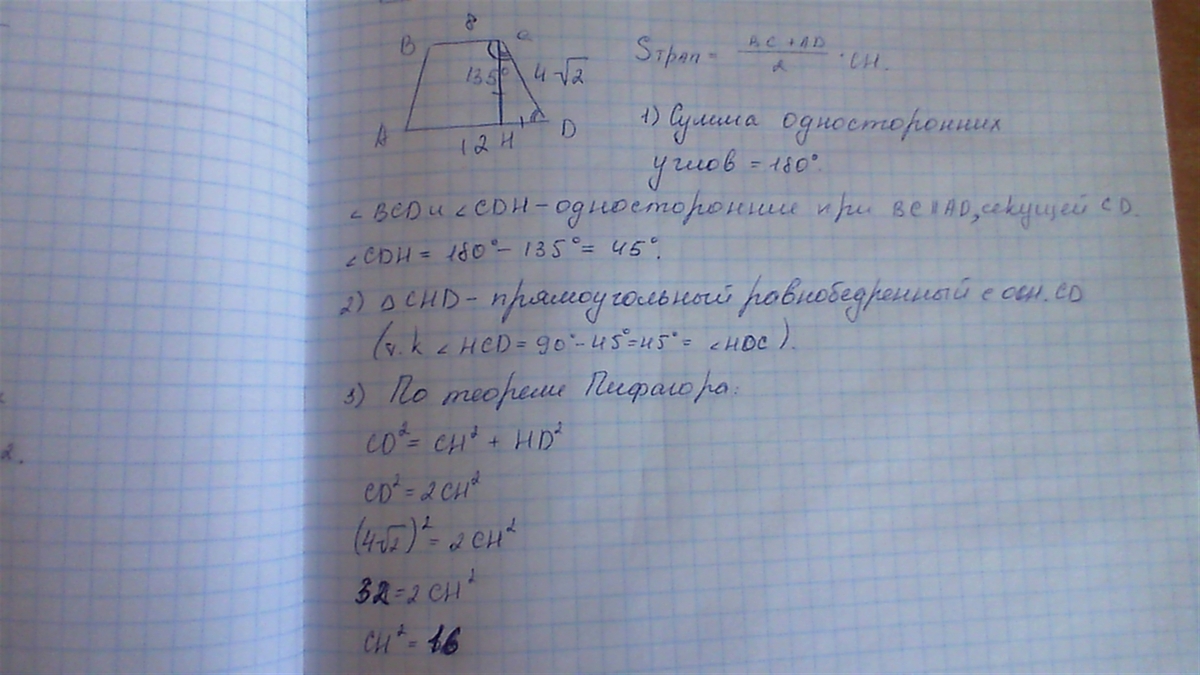 8
B C
135° 4√2
A 12 H D
Sтрап = (BC + AD)/2 · CH.
1) Сумма односторонних
углов = 180°.
∠BCD и ∠CDH – односторонние при BC ∥ AD, секущей CD.
∠CDH = 180° – 135° = 45°.
2) △CHD – прямоугольный равнобедренный с осн. CD
(т.к ∠HCD = 90° – 45° = 45° = ∠HDC).
3) По теореме Пифагора:
CD² = CH² + HD²
CD² = 2CH²
(4√2)² = 2CH²
32 = 2CH²
CH² = 16
2.